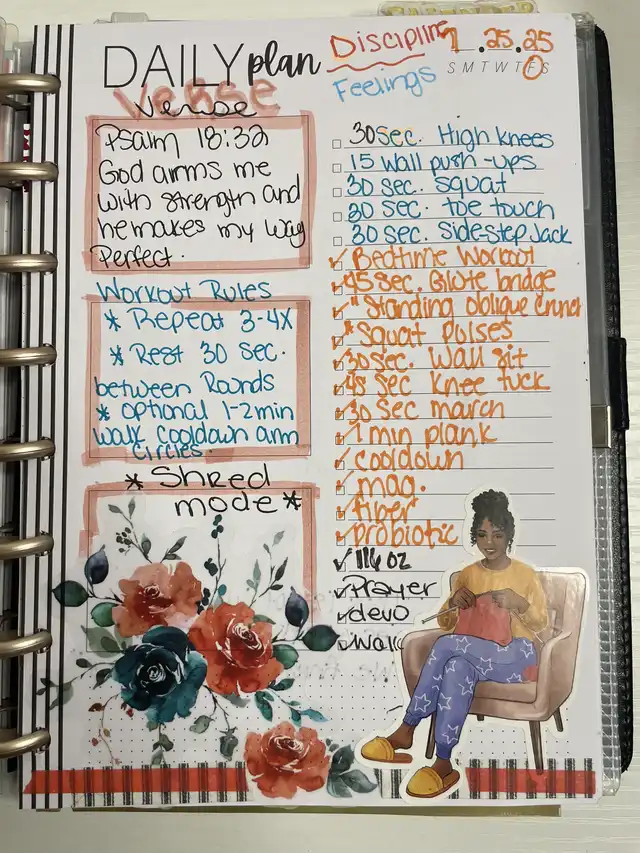 DAILY plan
Discipline
7.25.25
Feelings
S M T W T F S
Verse
Verse
Psalm 18:32
God arms me
with strength and
he makes my way
Perfect.
Workout Rules
* Repeat 3-4x
* Rest 30 sec.
between Rounds
* optional 1-2 min
walk cooldown arm
circles.
* Shred
mode *
30 Sec. High knees
15 Wall push-ups
30 sec. squat
30 sec. toe touch
30 sec. Side-Step Jack
Bedtime Workout
45 sec. Glute bridge
" Standing oblique crunch
" Squat Pulses
30 sec. Wall sit
45 sec knee tuck
30 sec march
1 min plank
cooldown
mag.
fiber
probiotic
116 oz
Prayer
devo